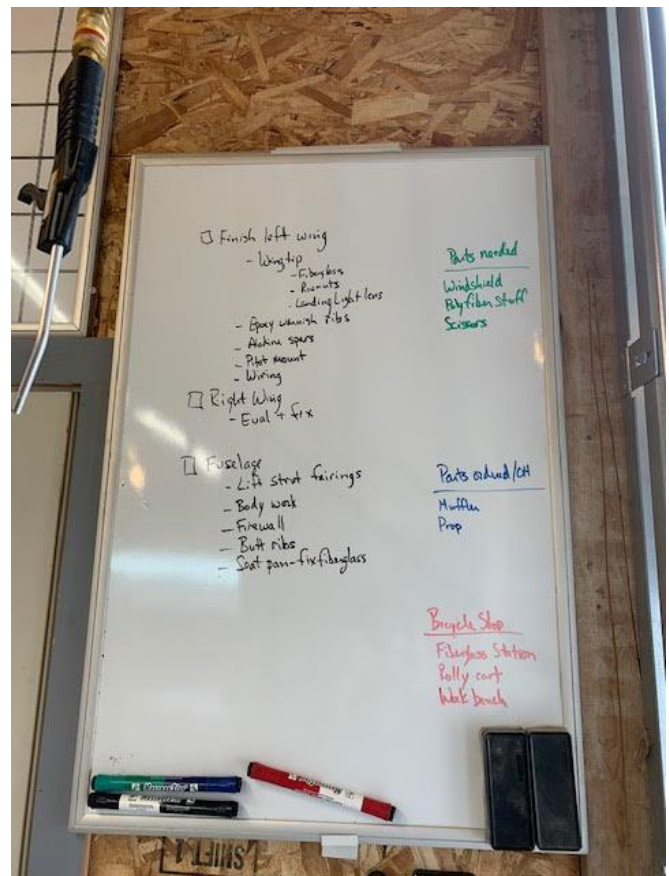 Finish left wing
- Wingtip
- Fiberglass
- Rivnuts
- Landing Light lens
- Epoxy varnish ribs
- Alodine spars
- Pitot mount
- Wiring
Right Wing
- Eval + fix
Fuselage
- Lift strut fairings
- Body work
- Firewall
- Butt ribs
- Seat pan-fix fiberglass
Parts needed
Windshield
Polyfiber Stuff
Scissors
Parts ordered/OH
Muffler
Prop
Bicycle Shop
Fiberglass Station
Rolly cart
Work bench
SHIFT 1